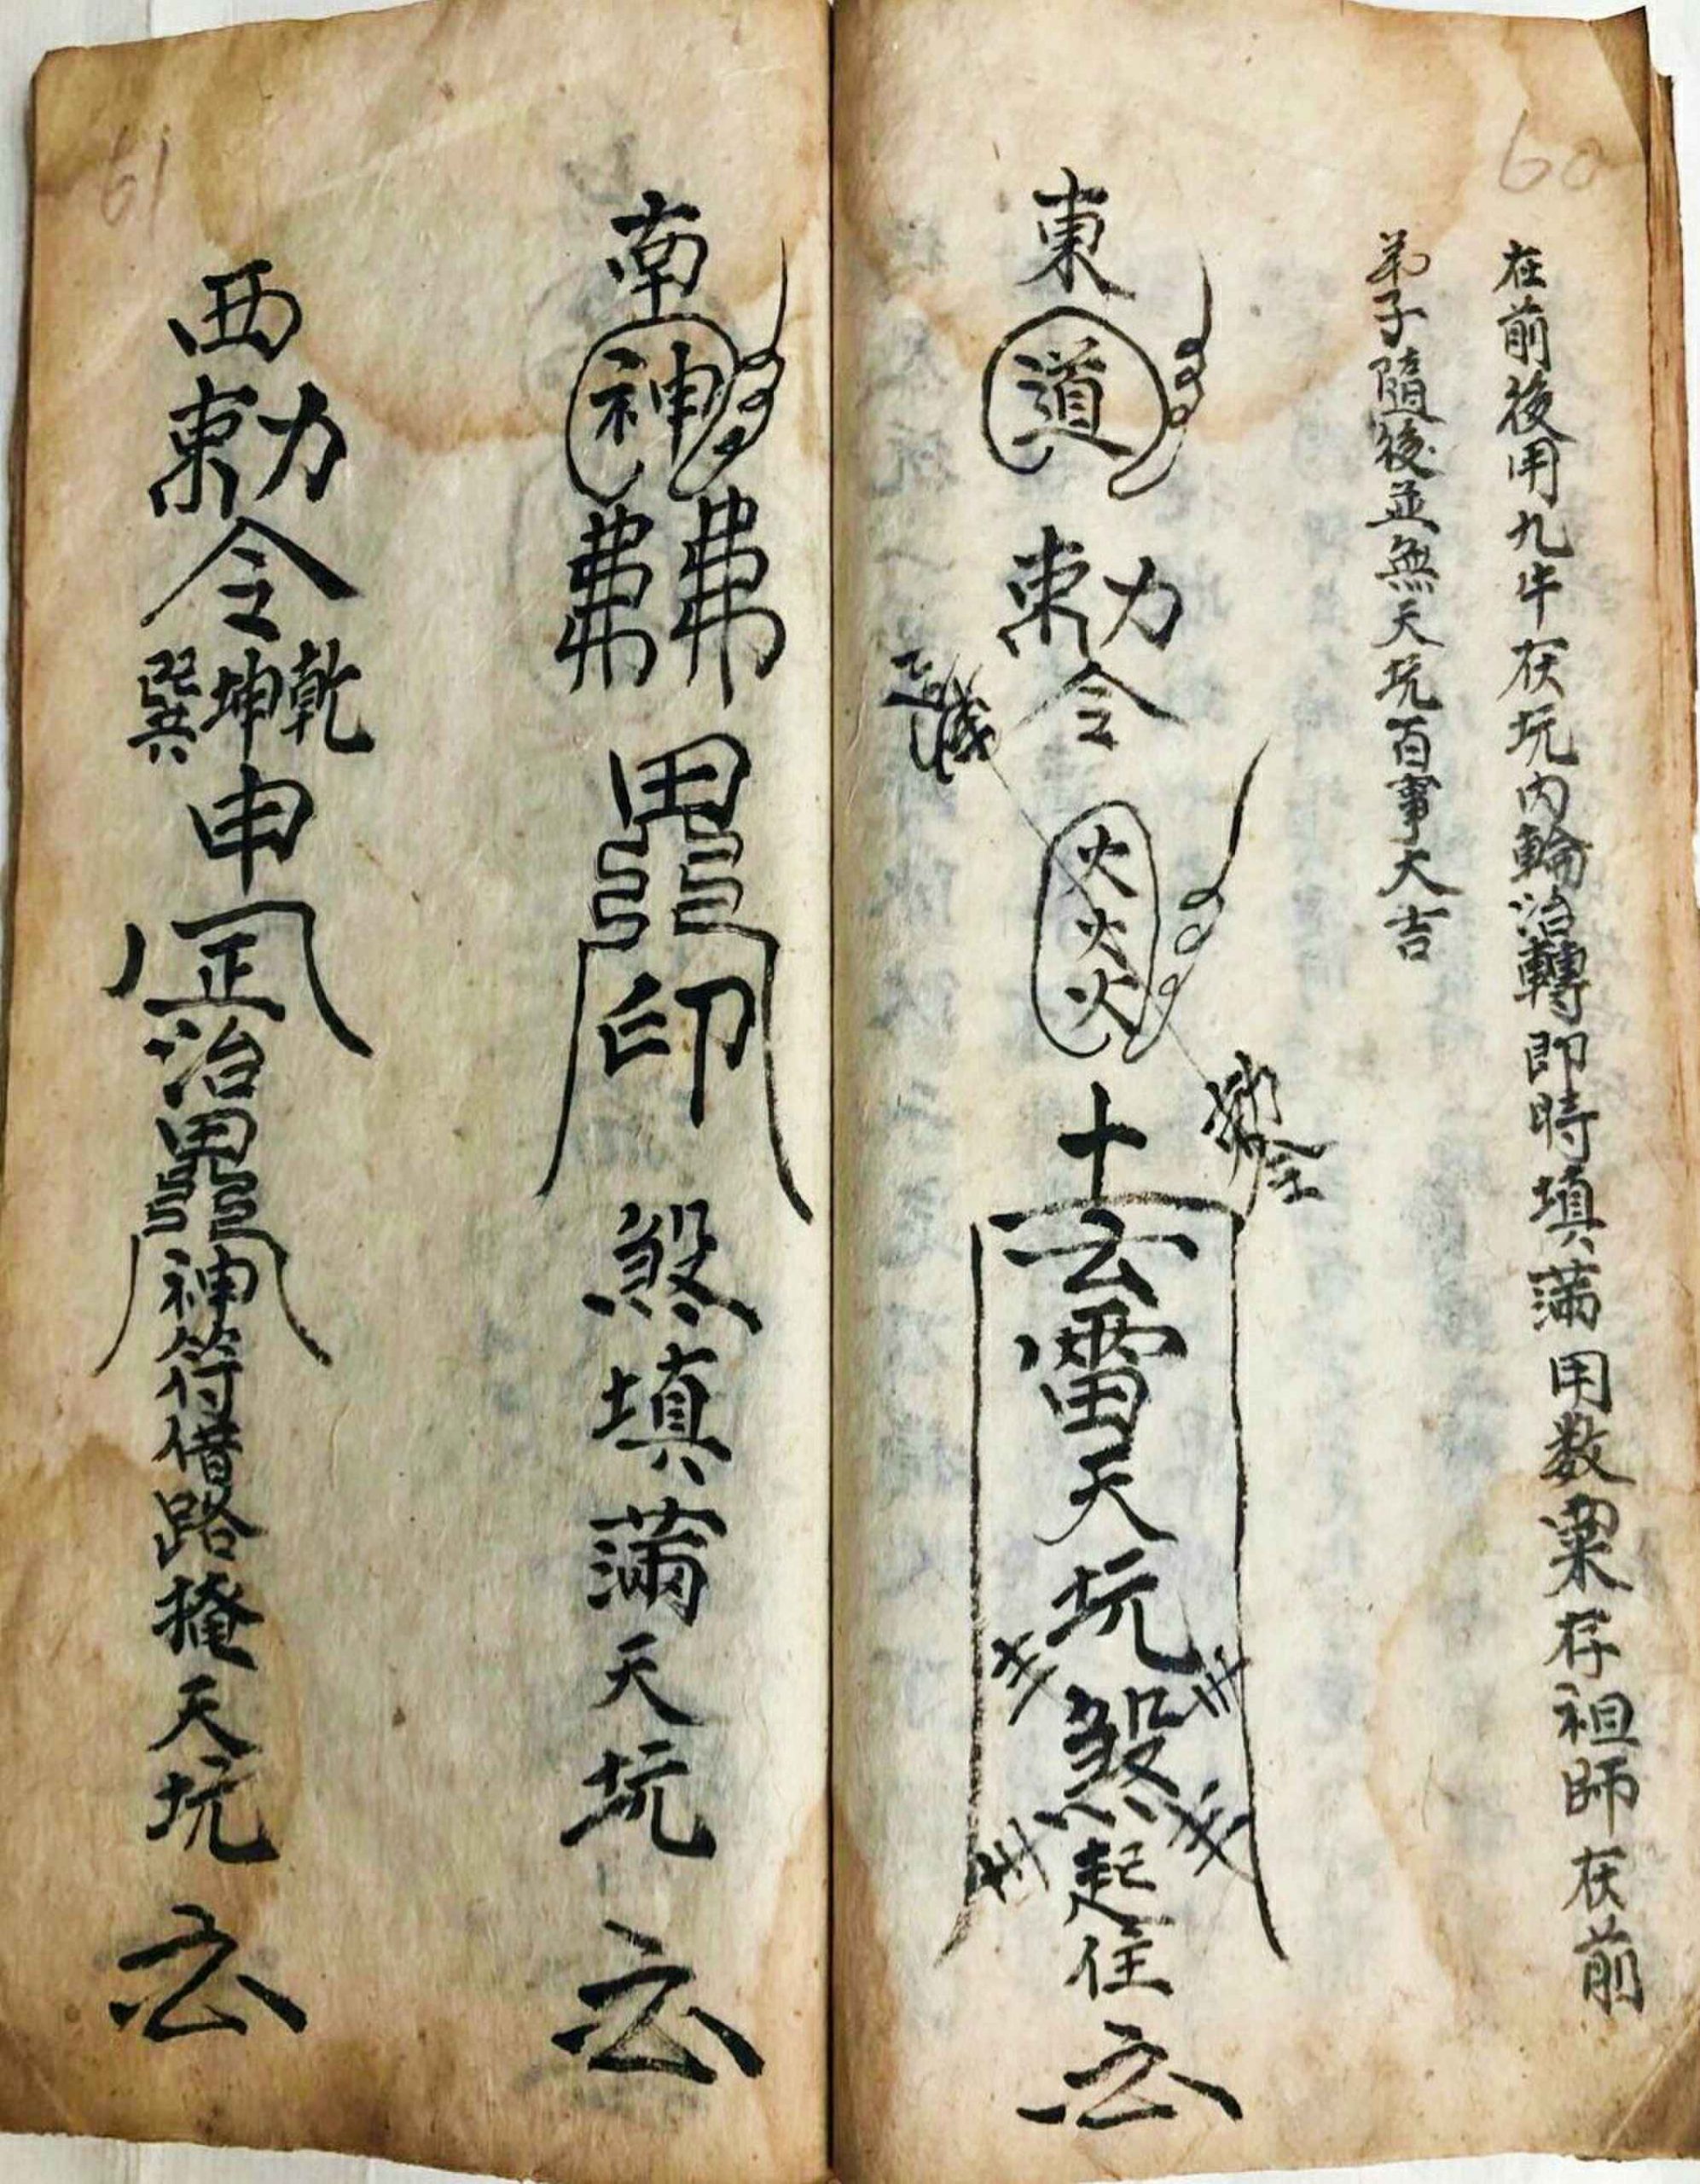 60
在前後用九牛茯坑内輪治轉即時填滿用数粟存祖師茯前
弟子隨後並無天坑百事大吉
東
道
勅令
火火火
十
玄雷天坑煞起住
61
南
神
印
煞填滿天坑
西
勅令
乾坤巽
申
正治
神符借路掩天坑